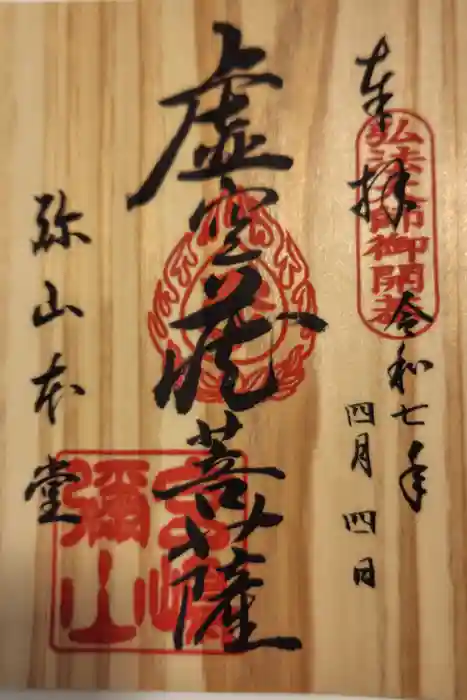 奉拝
弘法大師御開基
令和七年
四月四日
虚空蔵菩薩
弥山本堂
宮嶋
彌山